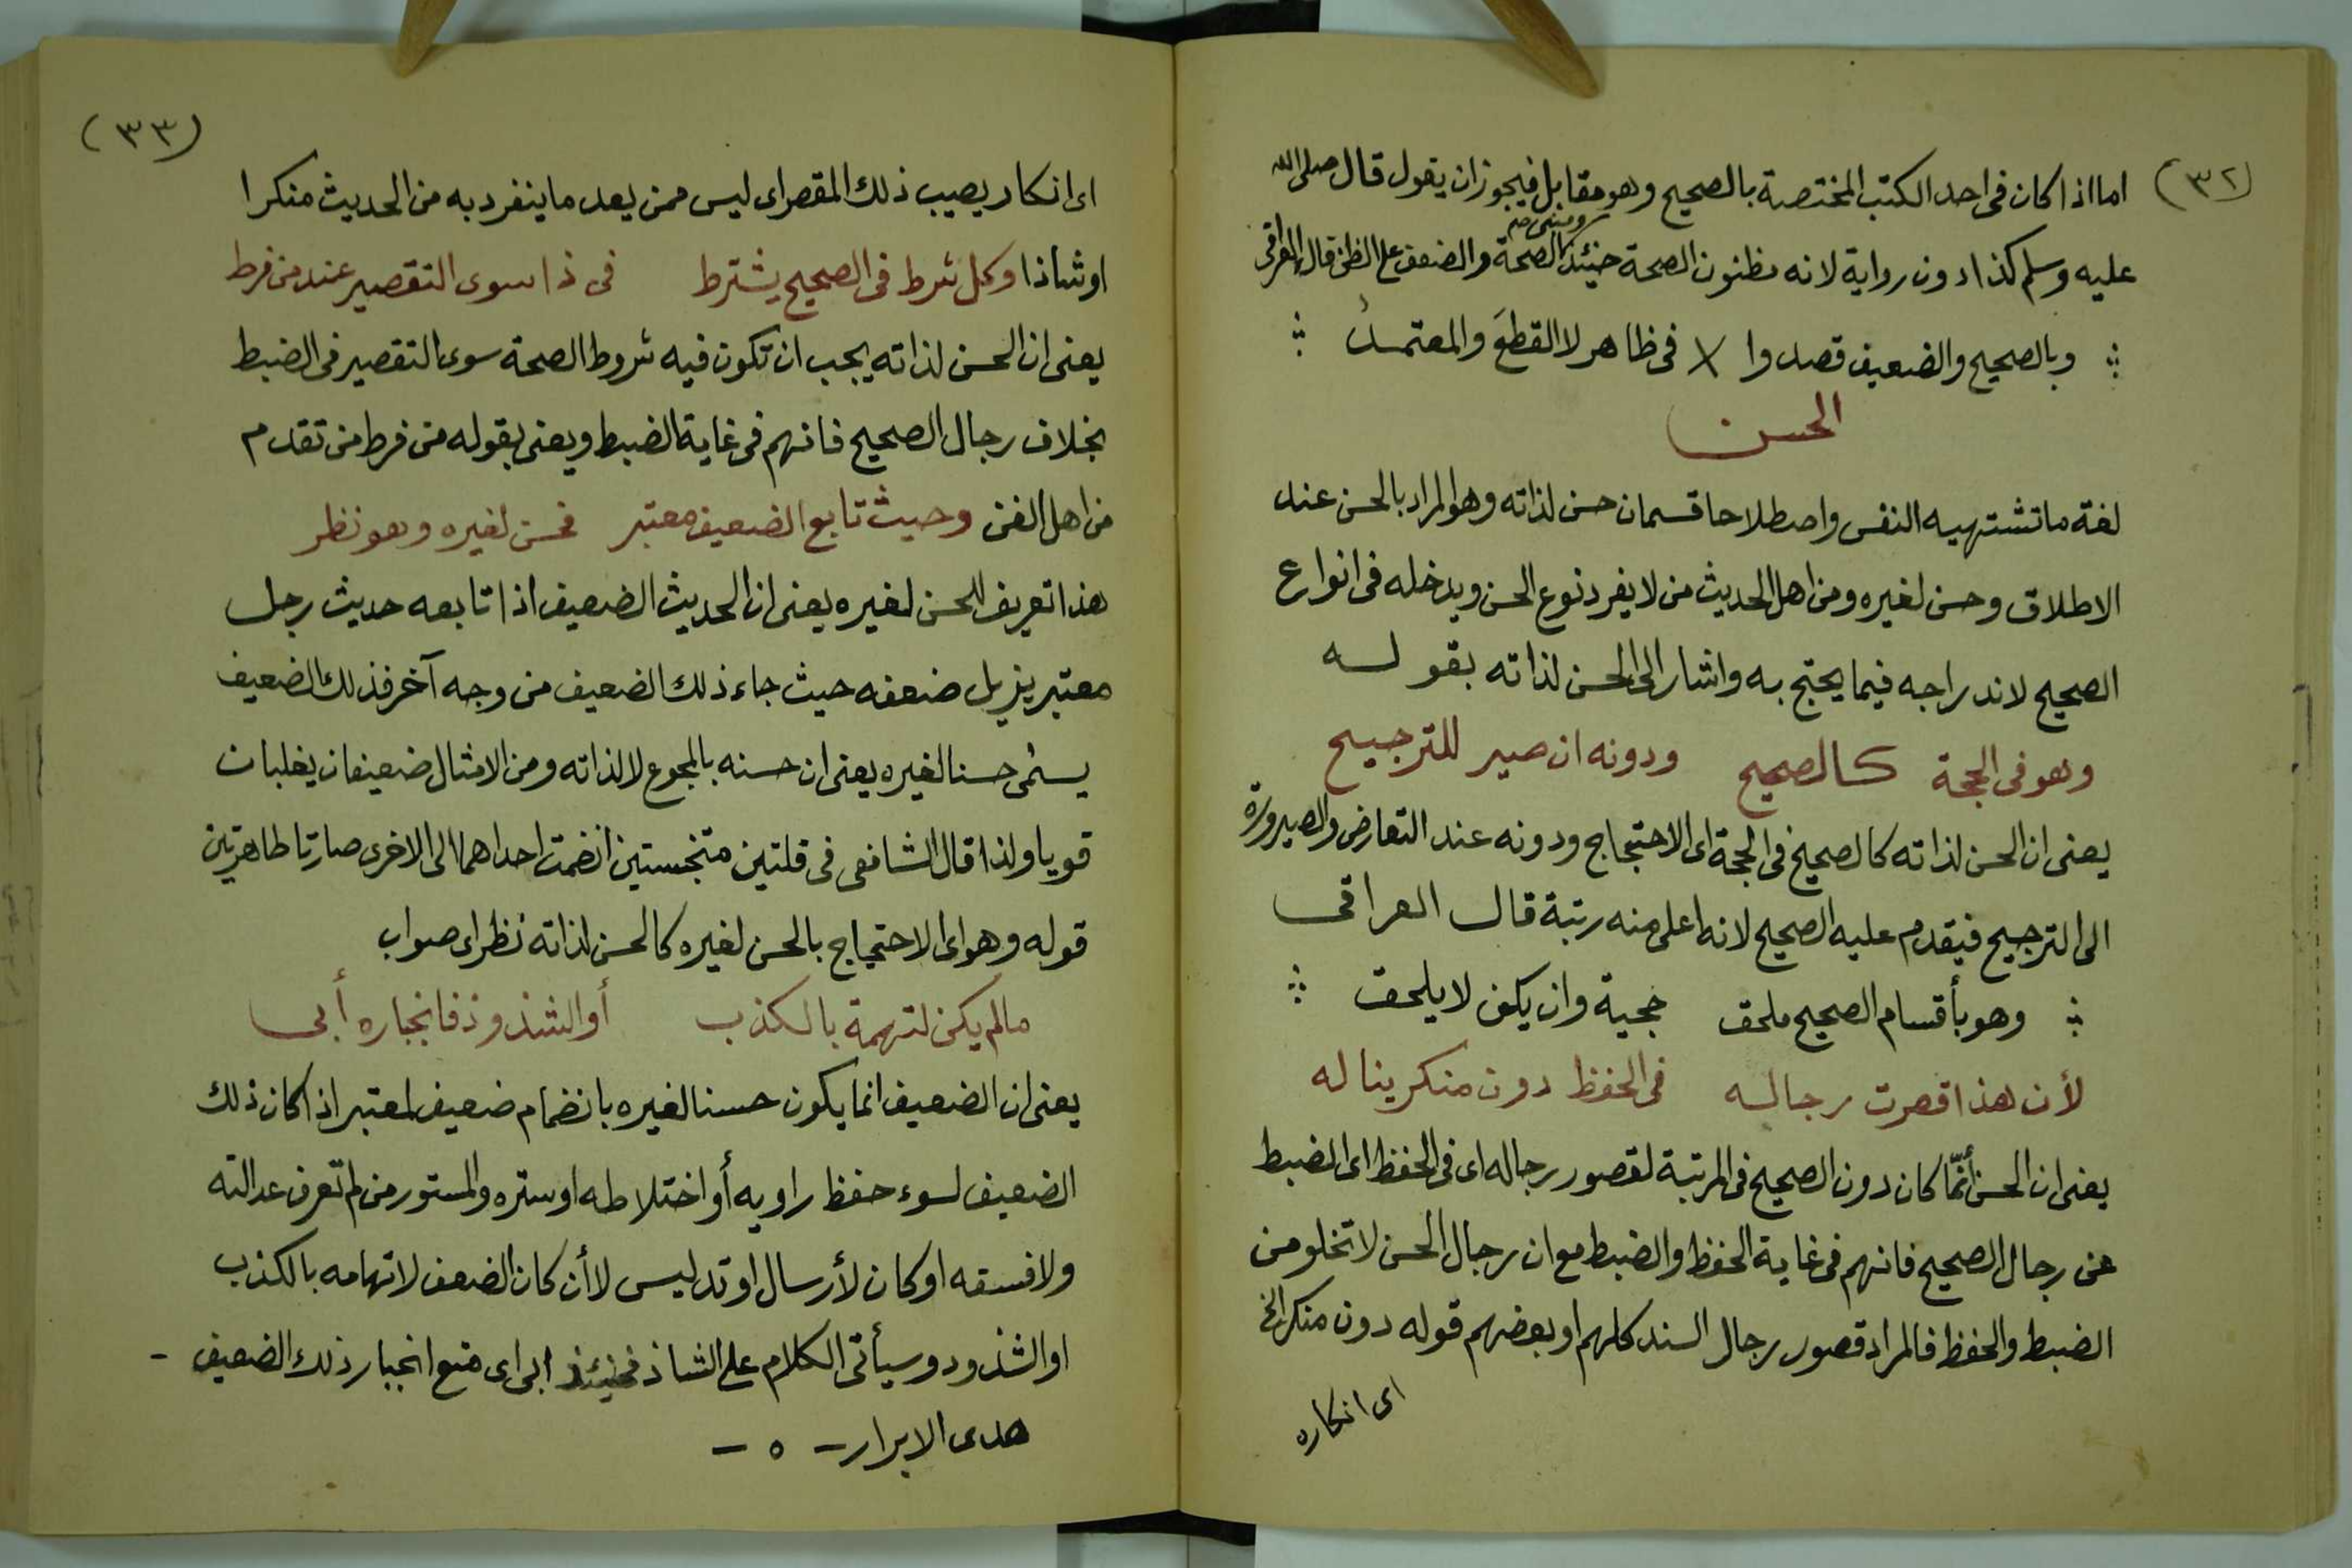 (٣٢)
اما اذا كان فى احد الكتب المختصة بالصحيح وهو مقابل فيجوز ان يقول قال صلى الله
عليه وسلم كذا دون رواية لانه مظنون الصحة حينئذ الصحة والضعف على الظن قال العراقى
وبالصحيح والضعيف قصدوا فى ظاهر لا القطعَ والمعتمدُ
الحسن
لغة ما تشتهيه النفس واصطلاحا قسمان حسن لذاته وهو المراد بالحسن عند
الاطلاق وحسن لغيره ومن اهل الحديث من لا يفرد نوع الحسن ويدخله فى انواع
الصحيح لاندراجه فيما يحتج به واشار الى الحسن لذاته بقوله
وهو فى الحجة كالصحيح ودونه ان صير للترجيح
يعنى ان الحسن لذاته كالصحيح فى الحجة اى الاحتجاج ودونه عند التعارض والصيرورة
الى الترجيح فيقدم عليه الصحيح لانه اعلى منه رتبة قال العراقى
وهو بأقسام الصحيح ملحق حجية وان يكن لا يلحق
لأن هذا قصرت رجاله فى الحفظ دون منكر يناله
يعنى ان الحسن أنّما كان دون الصحيح فى المرتبة لقصور رجاله اى فى الحفظ اى الضبط
عن رجال الصحيح فانهم فى غاية الحفظ والضبط مع ان رجال الحسن لا تخلو من
الضبط والحفظ فالمراد قصور رجال السند كلهم او بعضهم قوله دون منكر الخ
اى انكاره
(٣٣)
اى انكار يصيب ذلك المقصر اى ليس ممن يعد ما ينفرد به من الحديث منكرا
او شاذا وكل شرط فى الصحيح يشترط فى ذا سوى التقصير عند من فرط
يعنى ان الحسن لذاته يجب ان تكون فيه شروط الصحة سوى التقصير فى الضبط
بخلاف رجال الصحيح فانهم فى غاية الضبط ويعنى بقوله من فرط من تقدم
من اهل الفن وحيث تابع الضعيف معتبر فحسن لغيره وهو نظر
هذا تعريف للحسن لغيره يعنى ان الحديث الضعيف اذا تابعه حديث رجل
معتبر يزيل ضعفه حيث جاء ذلك الضعيف من وجه آخر فذلك الضعيف
يسمى حسنا لغيره يعنى ان حسنه بالمجموع لا لذاته ومن الامثال ضعيفان يغلبان
قويا ولذا قال الشافعى فى قلتين متنجستين انضمت احداهما الى الاخرى صارتا طاهرتين
قوله وهو اى الاحتجاج بالحسن لغيره كالحسن لذاته نظر اى صواب
مالم يكن لتهمة بالكذب أو الشذوذ فانجباره أبى
يعنى ان الضعيف انما يكون حسنا لغيره بانضمام ضعيف لمعتبر اذا كان ذلك
الضعيف لسوء حفظ راويه أو اختلاطه او ستره والمستور من لم تعرف عدالته
ولا فسقه او كان لأرسال او تدليس لا أن كان الضعف لاتهامه بالكذب
او الشذودو سيأتى الكلام على الشاذ فحينئذ ابى اى منع انجبار ذلك الضعيف -
هدى الابرار - ٥ -